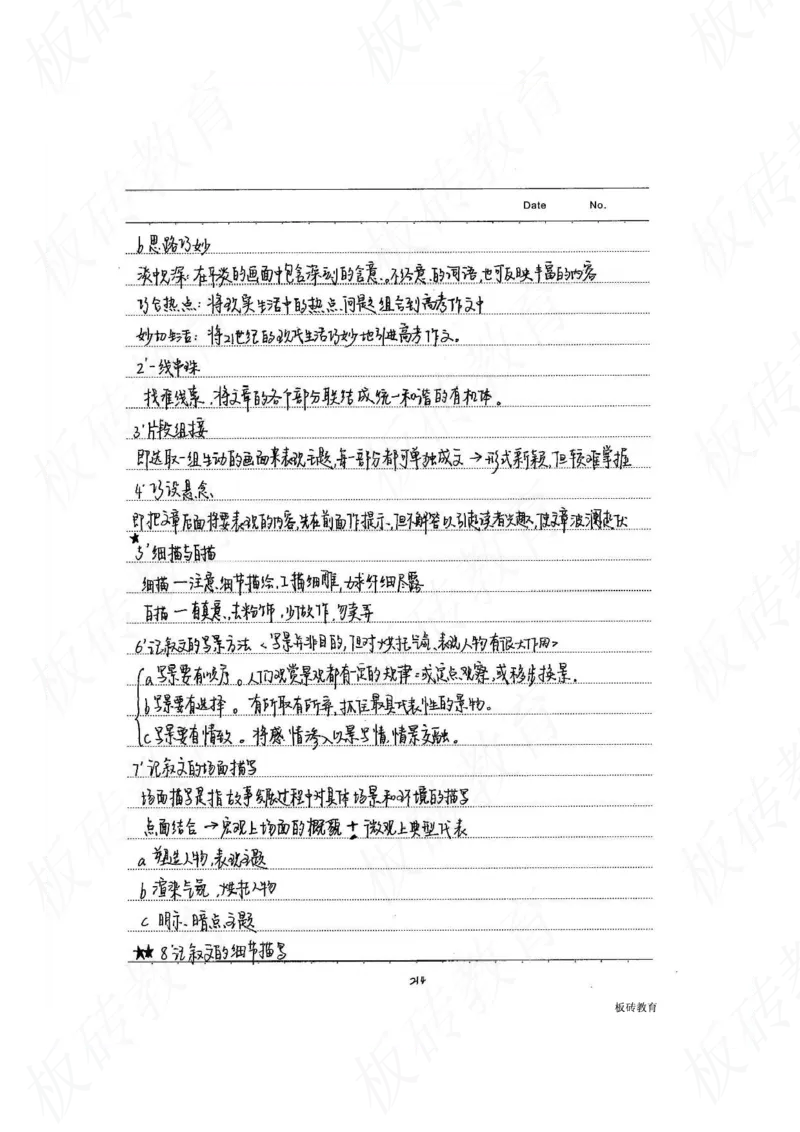 Date No.
b 思路巧妙
淡中见深: 在平淡的画面中包含深刻的含意、不经意的词语, 也可反映丰富的内容
巧合热点: 将现实生活中的热点、问题组合到高考作文中
妙切生活: 将21世纪的现代生活巧妙地引进高考作文。
2' 一线串珠
找准线索, 将文章的各个部分联结成统一和谐的有机体。
3' 片段组接
即选取一组生动的画面来表现主题, 每一部分都可单独成文 → 形式新颖, 但较难掌握
4' 巧设悬念
即把文章后面将要表现的内容, 先在前面作提示、但不解答以引起读者兴趣, 使文章波澜起伏
★ 5' 细描与白描
细描 — 注意细节描绘, 工描细雕, 力求纤细尽露
白描 — 有真意、去粉饰, 少做作, 勿卖弄
6' 记叙文的写景方法 <写景并非目的, 但对烘托气氛、表现人物有很大作用>
a 写景要有顺序。人们观赏景观都有一定的规律: 或定点观察, 或移步换景。
b 写景要有选择。有所取有所弃, 抓住最具代表性的景物。
c 写景要有情致。将感情渗入以景写情, 情景交融。
7' 记叙文的场面描写
场面描写是指故事发展过程中对具体场景和环境的描写
点面结合 → 宏观上场面的概貌 + 微观上典型代表
a 塑造人物, 表现主题
b 渲染气氛, 烘托人物
c 明示、暗点主题
★★ 8' 记叙文的细节描写
214
板砖教育